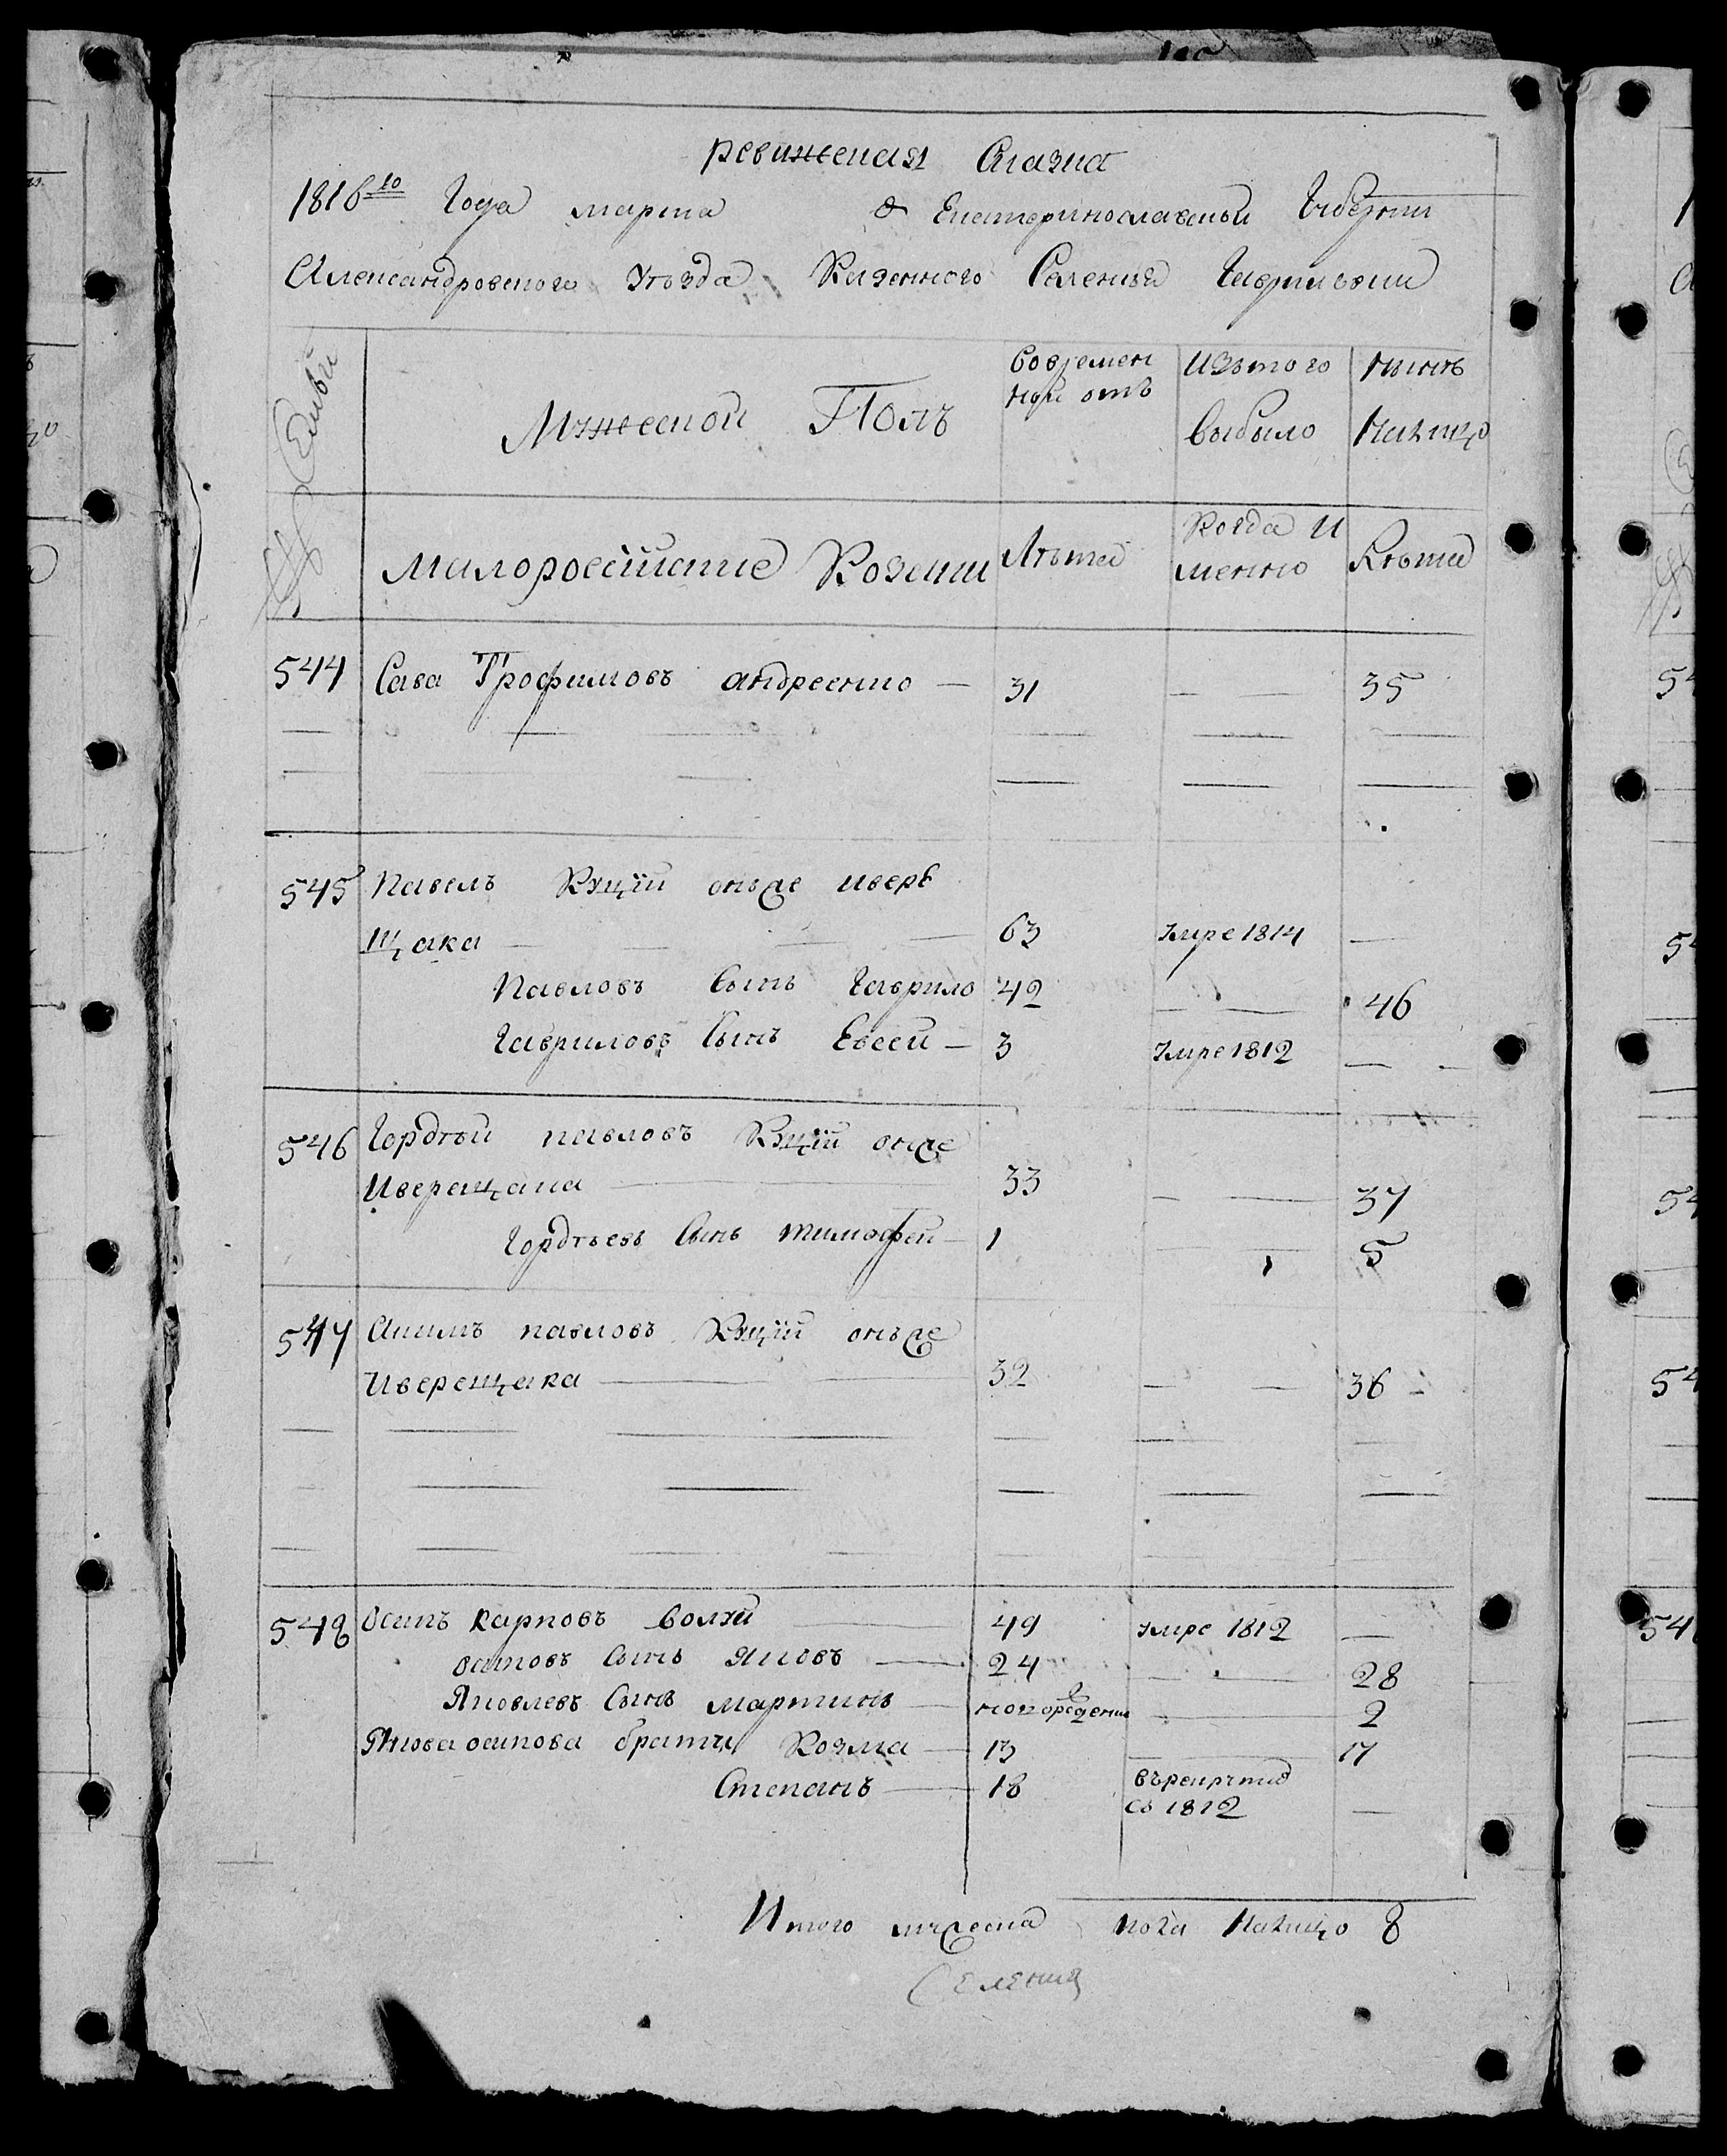 ревижская Сказка
1816го Года марта д Екатеринославской Губернии
Александровского Уезда Казенного Селенья Гаврилвки
Семьи
Мужеской Полъ
Современ
ной отъ
Изътого
выбыло
Нынѣ
Налицо
Малороссійские Козаки
Лѣта
Когда и
менно
Лѣта
544 Сава Трофимовъ андреенко — 31 — — 35
545 Павелъ Куций онъже иверь
щака — 63 умре 1814 —
Павловъ Сынъ Гаврило 42 — — 46
Гавриловъ Сынъ Евсей — 3 Умре 1812 —
546 Гордѣй павловъ Куцій онже
Иверещака — 33 — — 37
Гордѣевъ Сынъ тимофей — 1 — 5
547 Акимъ павловъ Куцій онъже
Иверещака — 32 — — 36
548 Осипъ карповъ волхи — 49 умре 1812 —
осиповъ Сынъ Яковъ — 24 — — 28
Яковлевъ Сынъ мартинъ — новорожденны — 2
Якова осипова братья Козма — 13 — 17
Степанъ — 18 върекрутид
съ 1812 —
Итого мужеска пола Налицо 8
Селения